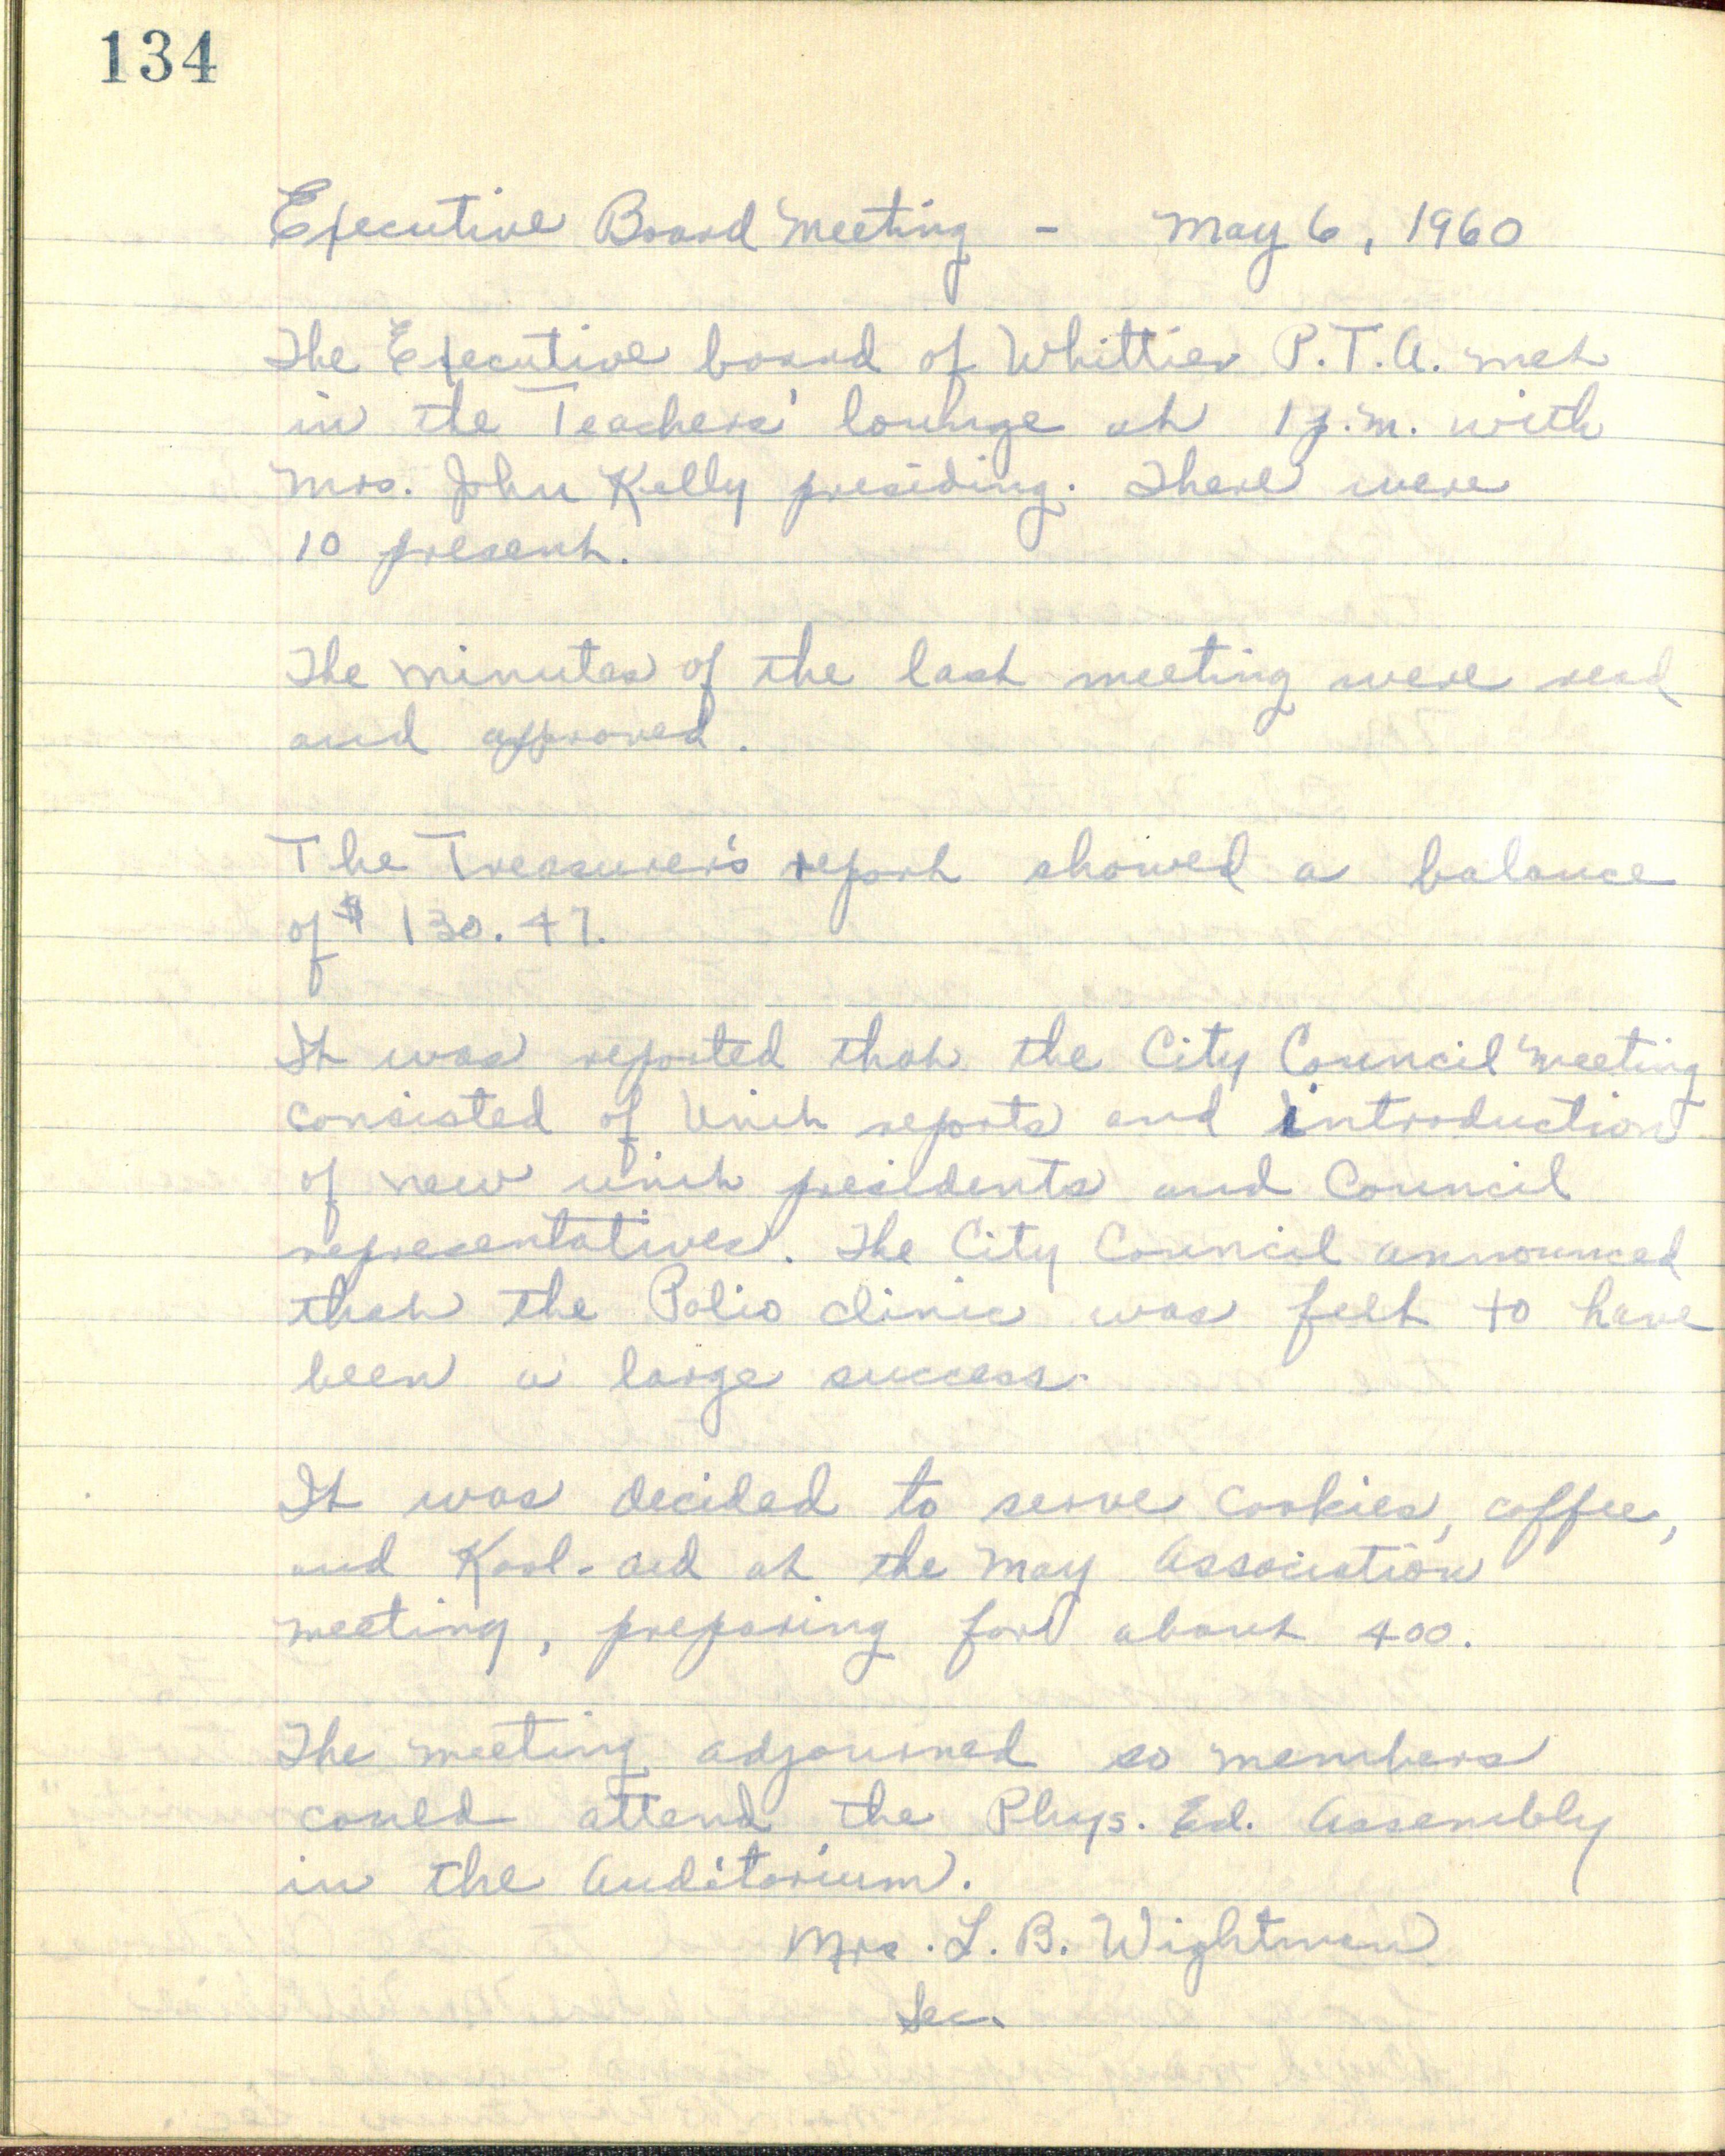 134
Executive Board Meeting - May 6, 1960
The Executive board of Whittier P.T.A. met
in the Teachers' lounge at 1 p.m. with
Mrs. John Kelly presiding. There were
10 present.
The minutes of the last meeting were read
and approved.
The Treasurer's report showed a balance
of $130.47.
It was reported that the City Council Meeting
consisted of Unit reports and introduction
of new unit presidents and Council
representatives. The City Council announced
that the Polio clinic was felt to have
been a large success.
It was decided to serve cookies, coffee,
and Kool-aid at the May Association
meeting, preparing for about 400.
The meeting adjourned so members
could attend the Phys. Ed. Assembly
in the Auditorium.
Mrs. L. B. Wightman
Sec.